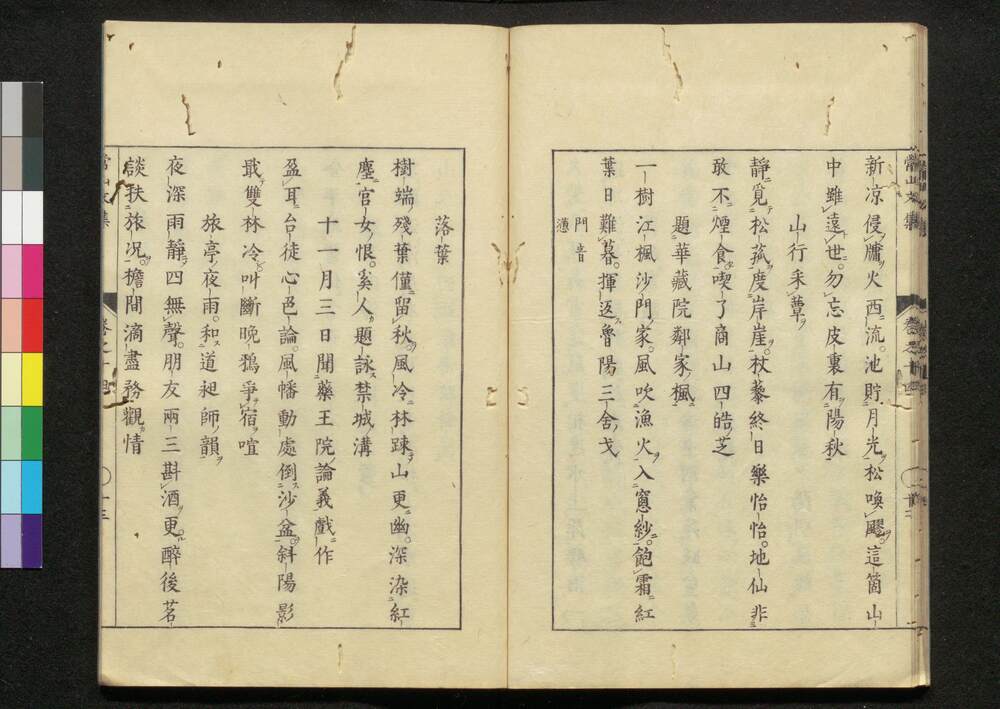 新凉侵牖火西流。池貯月光松喚飂。這箇山
中雖遠世。勿忘皮裏有陽秋
山行采蕈
靜覓松菰度岸崖。杖藜終日樂怡怡。地仙非
敢不煙食。喫了商山四皓芝
題華藏院鄰家楓
一樹江楓沙門家。風吹漁火入窻紗。飽霜紅
葉日難暮。揮返魯陽三舍戈
門音
懣
落葉
樹端殘葉僅留秋。風冷林踈山更幽。深染紅
塵宮女恨。奚人題詠禁城溝
十一月三日聞藥王院論義戲作
盈耳台徒心色論。風幡動處倒沙盆。斜陽影
戢雙林冷。叫斷晩鴉爭宿喧
旅亭夜雨。和道昶師韻
夜深雨靜四無聲。朋友兩三斟酒更。醉後茗
談扶旅况。檐間滴盡務觀情
常山文集
卷之十四
十三